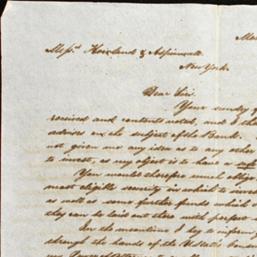 Mess.rs Howland & Aspinwall
New York.
Dear Sirs.
Your sundry
received and contents noted, and I th
advice on the subject of the Bank.
not given me any idea as to any other
to invest, as my object is to have a safe
You would therefore much oblige
most eligible security in which to invest
as well as some further funds which
they can be laid out there with perfect
In the meantime I beg to inform
through the hands of the U. States